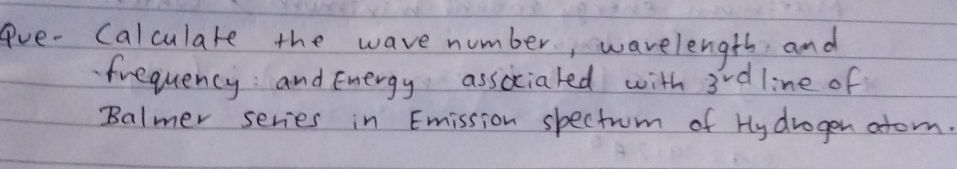 Que- Calculate the wave number, wavelength and
frequency and Energy associated with 3rd line of
Balmer series in Emission spectrum of Hydrogen atom.